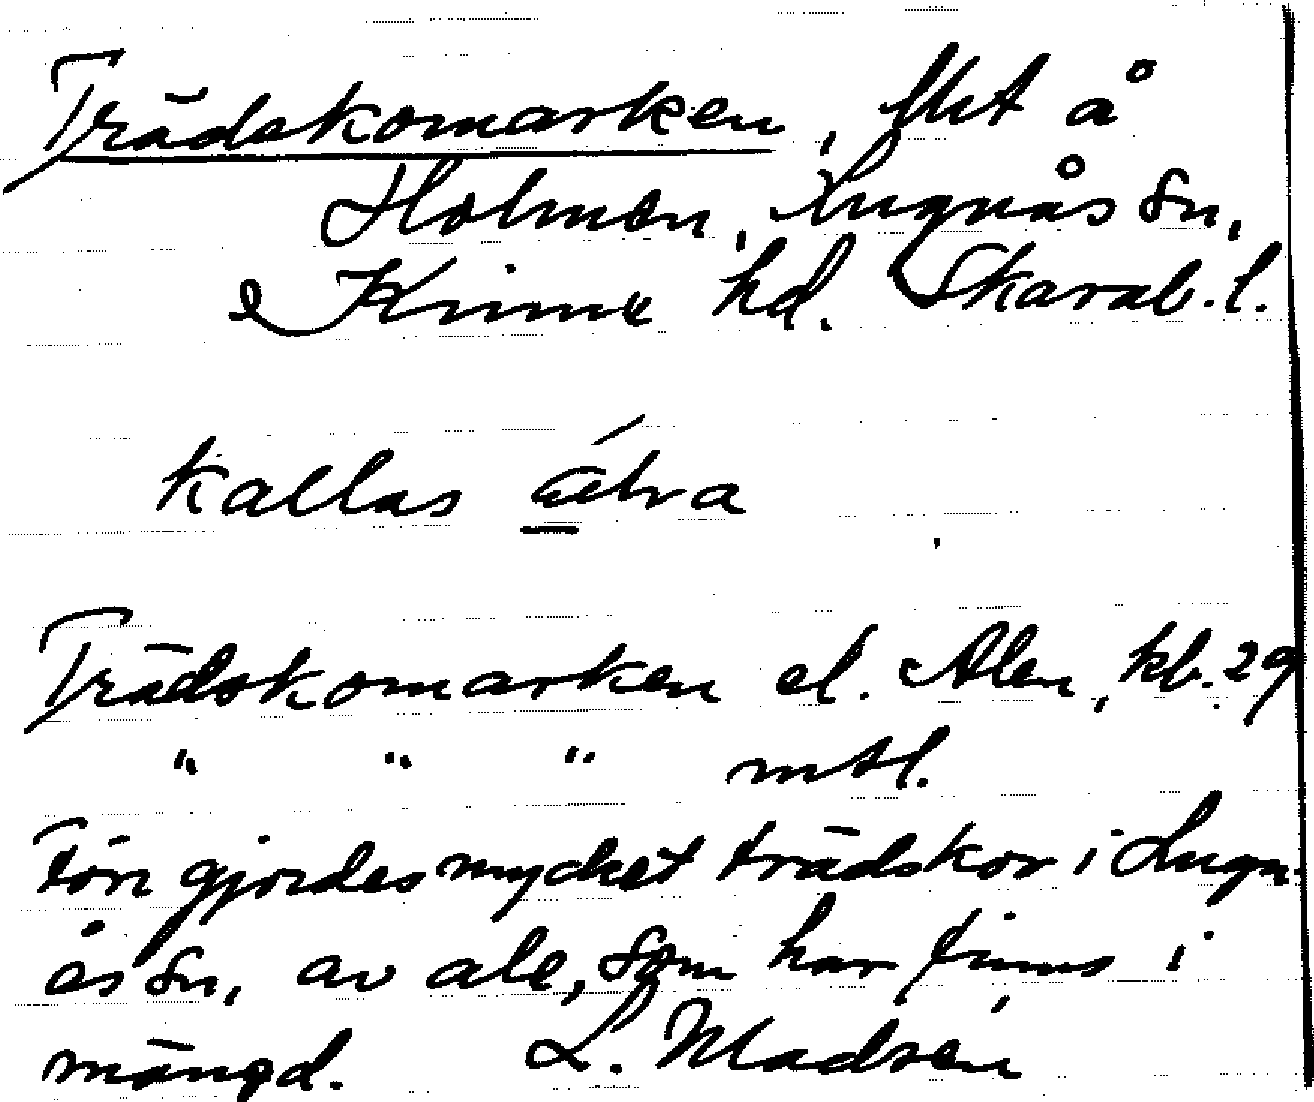 Trädskomarken, Mrt å
Holmen, Lugnås sn,
Kinne hd. Skarab. l.
kallas áhra
Trädskomarken el. Alen, kb. 29
" " " mtl.
Förr gjordes mycket trädskor i Lugn-
ås sn, av ale, som här finns i
mängd. L. Madsén